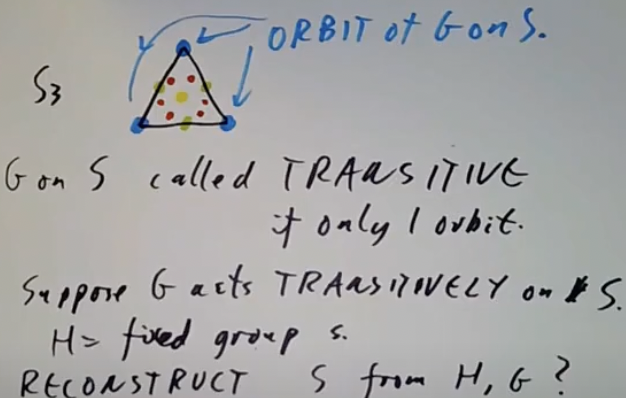 ORBIT of G on S.
S3
G on S called TRANSITIVE
if only 1 orbit.
Suppose G acts TRANSITIVELY on S.
H = fixed group s.
RECONSTRUCT S from H, G ?